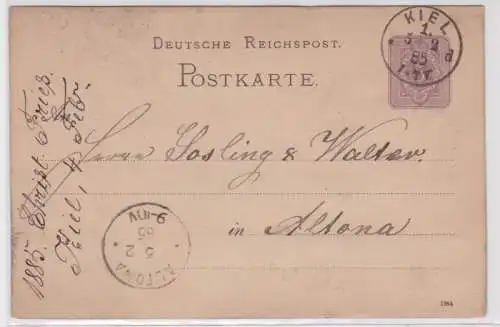 DEUTSCHE REICHSPOST.
POSTKARTE.
KIEL
1.
5 2
85
d
Herrn Sosling & Walter.
in Altona
ALTONA
5 2
85
1885.
Kiel, 4 Feb.
1284